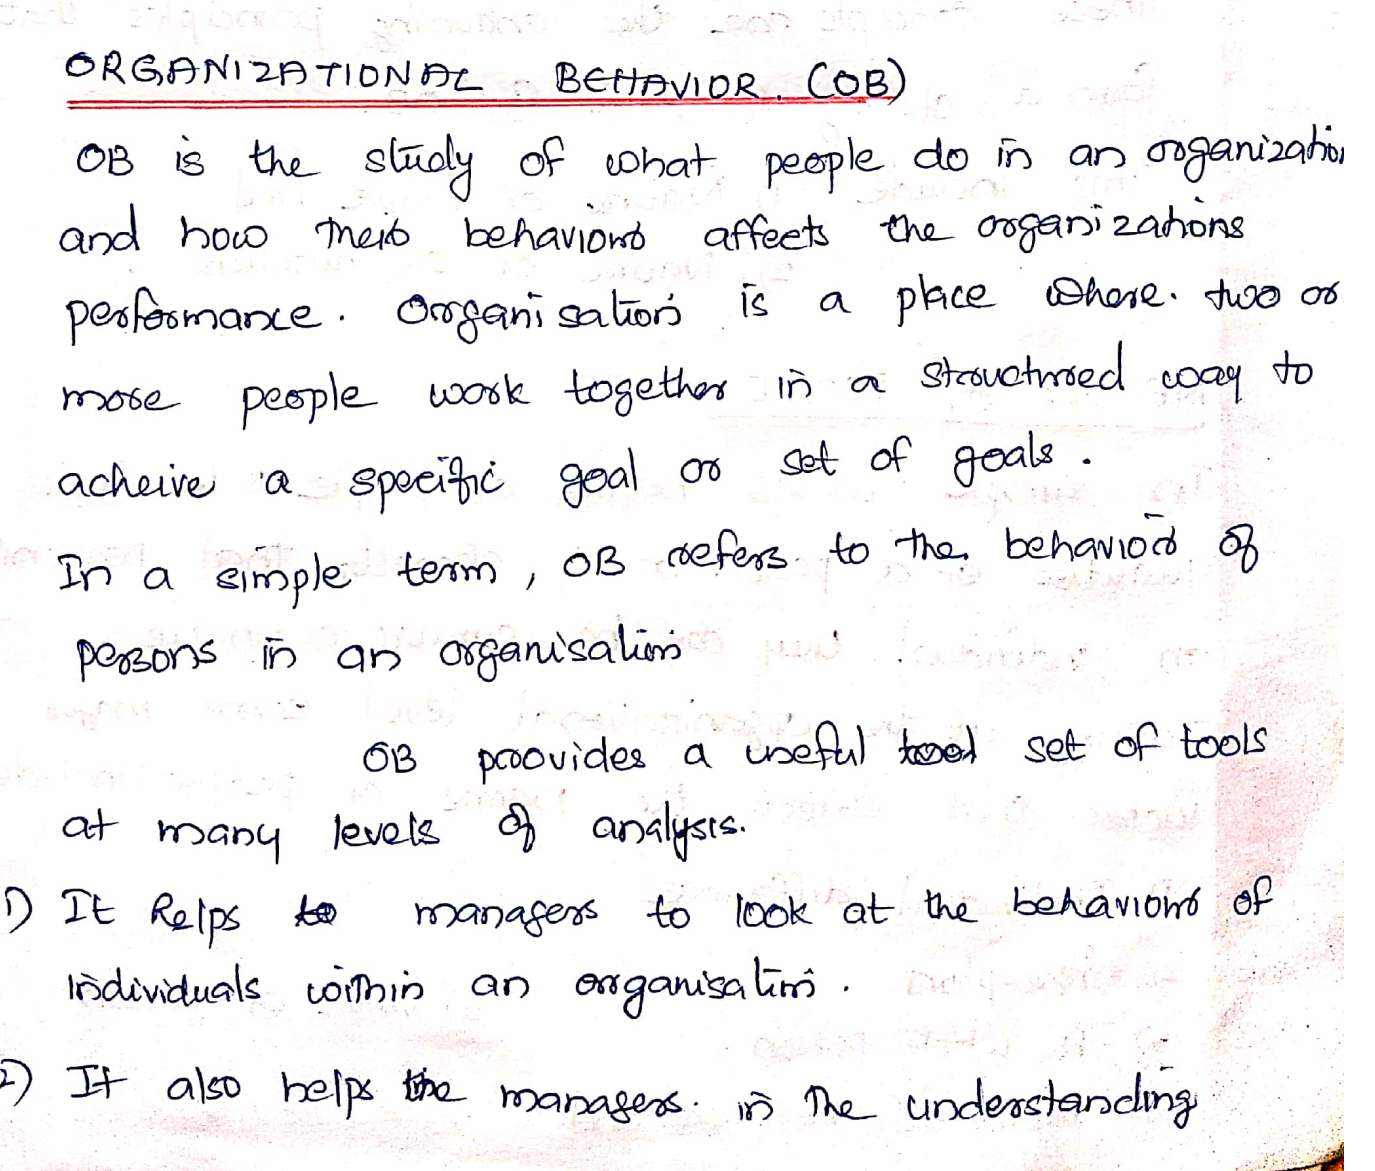 ORGANIZATIONAL BEHAVIOR. (OB)
OB is the study of what people do in an organization
and how their behaviour affects the organizations
performance. Organisation is a place where two or
more people work together in a structured way to
acheive a specific goal or set of goals.
In a simple term, OB refers to the behaviour of
persons in an organisation
OB provides a useful tool set of tools
at many levels of analysis.
1) It helps to managers to look at the behaviour of
individuals within an organisation.
2) It also helps the managers in the understanding